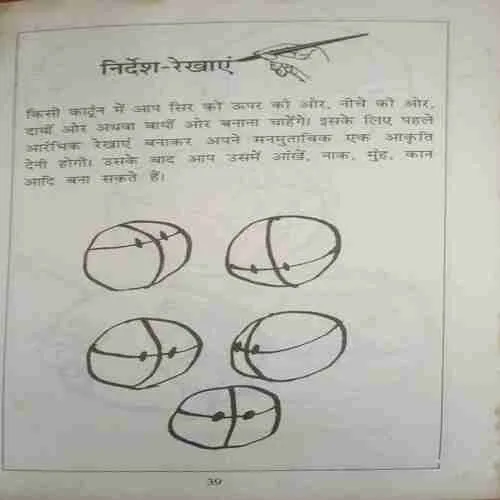 निर्देश-रेखाएं
किसी कार्टून में आप सिर को ऊपर की ओर, नीचे की ओर,
दायीं ओर अथवा बायीं ओर बनाना चाहेंगे। इसके लिए पहले
आरंभिक रेखाएं बनाकर अपने मनमुताबिक एक आकृति
देनी होगी। उसके बाद आप उसमें आंखें, नाक, मुंह, कान
आदि बना सकते हैं।
39